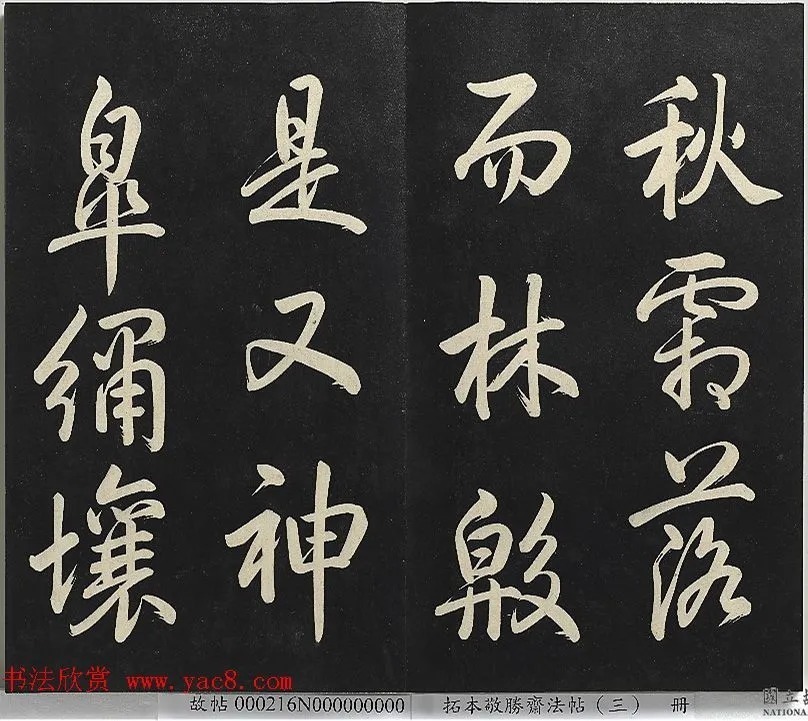 秋霜落
而林殷
是又神
皐繡壤
书法欣赏 www.yac8.com
故帖 000216N000000000 拓本敬勝齋法帖（三） 册
國立
NATIONA